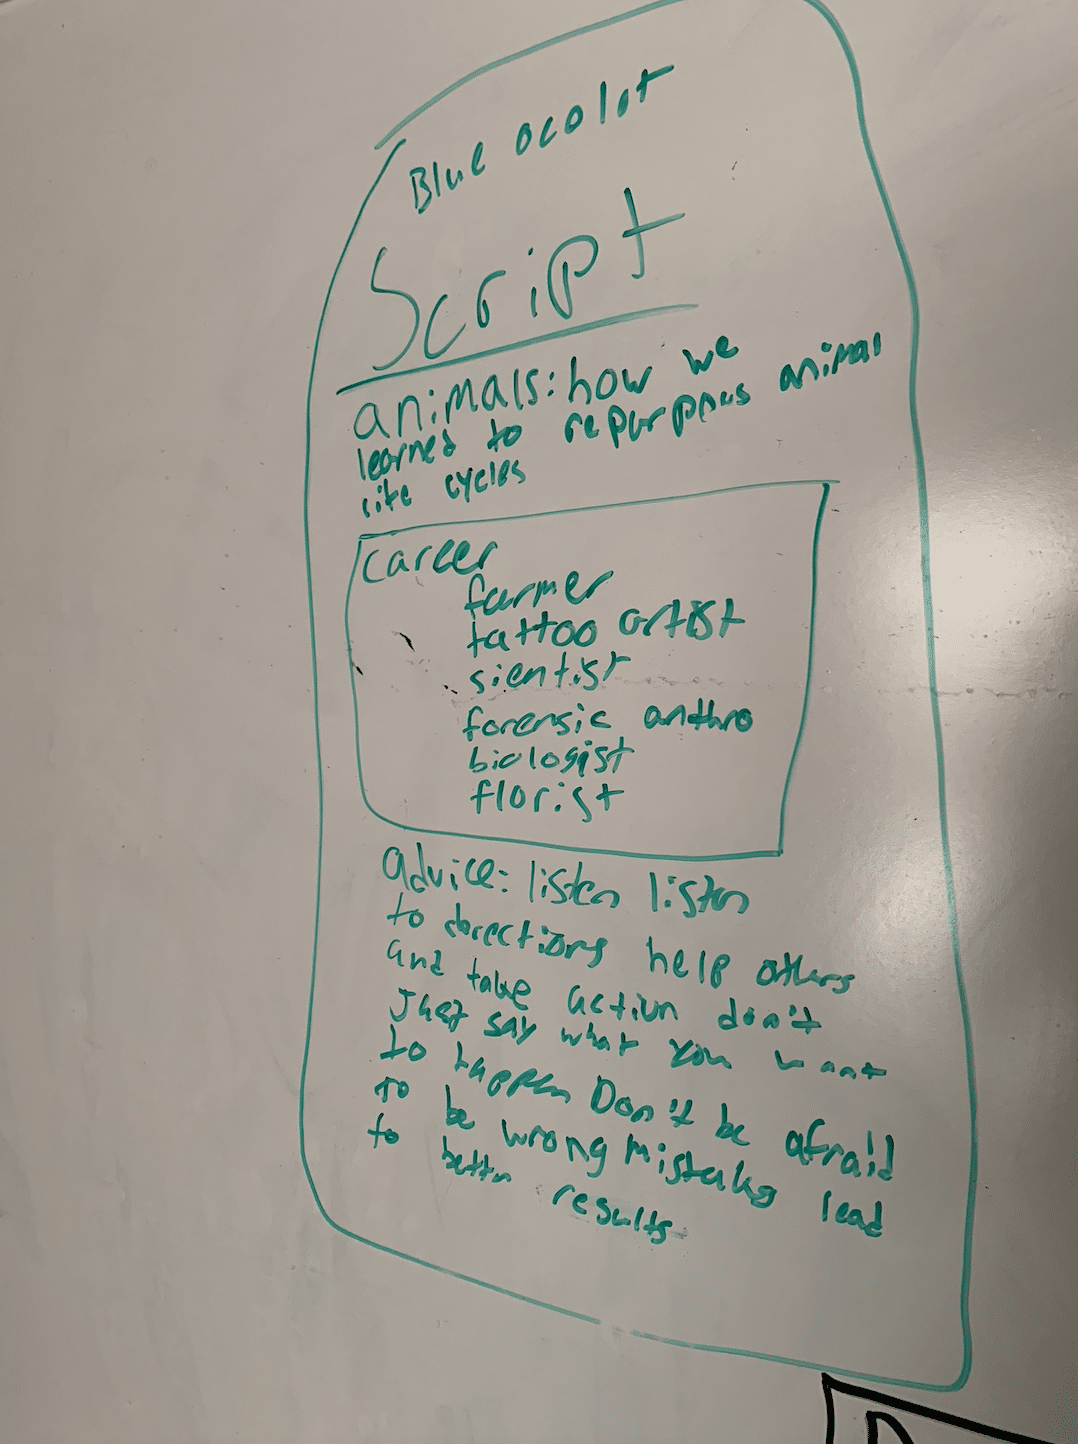 Blue ocolot
Script
animals: how we
learned to repurppus animal
life cycles
career
farmer
tattoo artist
sientist
forensic anthro
biologist
florist
advice: listen listen
to directions help others
and take action don't
just say what you want
to happen Don't be afraid
to be wrong mistakes lead
to better results